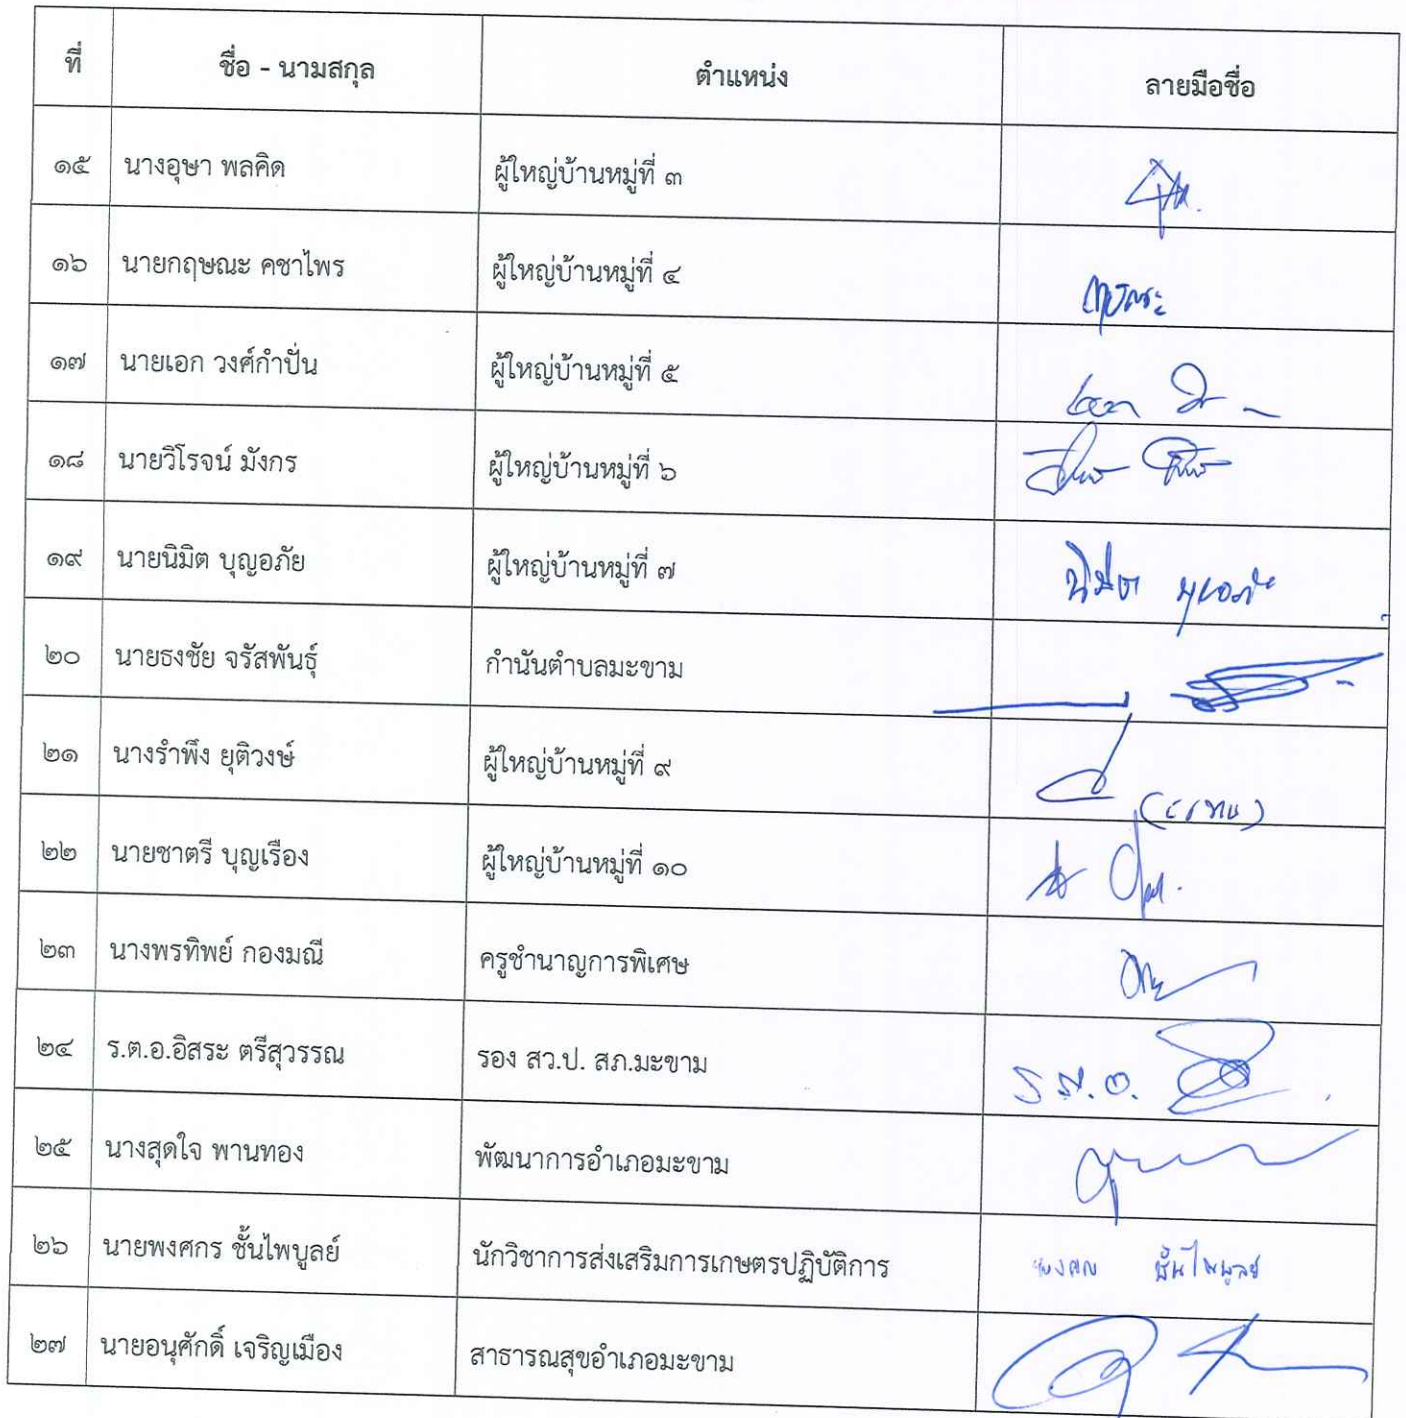 ที่ ชื่อ - นามสกุล ตำแหน่ง ลายมือชื่อ
๑๕ นางอุษา พลคิด ผู้ใหญ่บ้านหมู่ที่ ๓
๑๖ นายกฤษณะ คชาไพร ผู้ใหญ่บ้านหมู่ที่ ๔ กฤษณะ
๑๗ นายเอก วงศ์กำปั่น ผู้ใหญ่บ้านหมู่ที่ ๕
๑๘ นายวิโรจน์ มังกร ผู้ใหญ่บ้านหมู่ที่ ๖
๑๙ นายนิมิต บุญอภัย ผู้ใหญ่บ้านหมู่ที่ ๗ นิมิต บุญอภัย
๒๐ นายธงชัย จรัสพันธุ์ กำนันตำบลมะขาม
๒๑ นางรำพึง ยุติวงษ์ ผู้ใหญ่บ้านหมู่ที่ ๙
๒๒ นายชาตรี บุญเรือง ผู้ใหญ่บ้านหมู่ที่ ๑๐
๒๓ นางพรทิพย์ กองมณี ครูชำนาญการพิเศษ
๒๔ ร.ต.อ.อิสระ ตรีสุวรรณ รอง สว.ป. สภ.มะขาม ร.ต.อ.
๒๕ นางสุดใจ พานทอง พัฒนาการอำเภอมะขาม
๒๖ นายพงศกร ชั้นไพบูลย์ นักวิชาการส่งเสริมการเกษตรปฏิบัติการ พงศกร ชั้นไพบูลย์
๒๗ นายอนุศักดิ์ เจริญเมือง สาธารณสุขอำเภอมะขาม